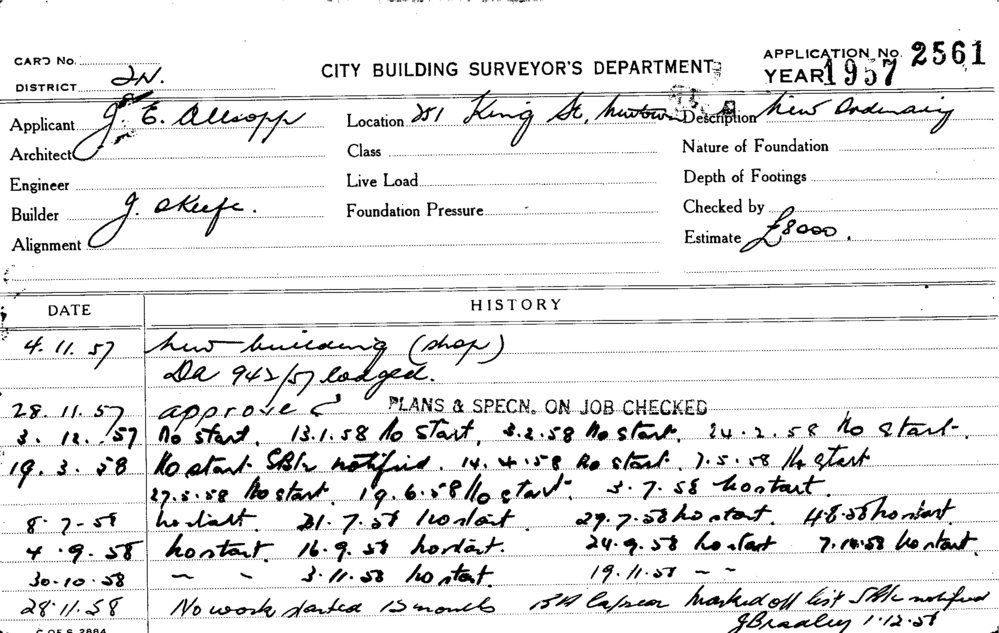 CARD No.
DISTRICT 2N.
CITY BUILDING SURVEYOR'S DEPARTMENT
APPLICATION No. 2561
YEAR 1957
Applicant J. E. Allsopp
Location 251 King St, Newtown
Description New Ordinary
Architect
Class
Nature of Foundation
Engineer
Live Load
Depth of Footings
Builder J. O'Keefe.
Foundation Pressure
Checked by
Alignment
Estimate £8000.
DATE HISTORY
4.11.57 New building (shop)
DA 942/57 lodged.
28.11.57 approve PLANS & SPECN. ON JOB CHECKED
3.12.57 No start. 13.1.58 No start, 3.2.58 No start. 24.2.58 No start.
19.3.58 No start notified. 14.4.58 No start. 7.5.58 No start
27.5.58 No start. 19.6.58 No start. 3.7.58 No start.
8.7.58 No start. 21.7.58 No start. 29.7.58 No start. 4.8.58 No start.
4.9.58 No start. 16.9.58 No start. 24.9.58 No start 7.10.58 No start.
30.10.58 ~ ~ 3.11.58 No start. 19.11.58 ~ ~
28.11.58 No work started 12 months BA lapsed Marked off list notified
J Bradley 1.12.58